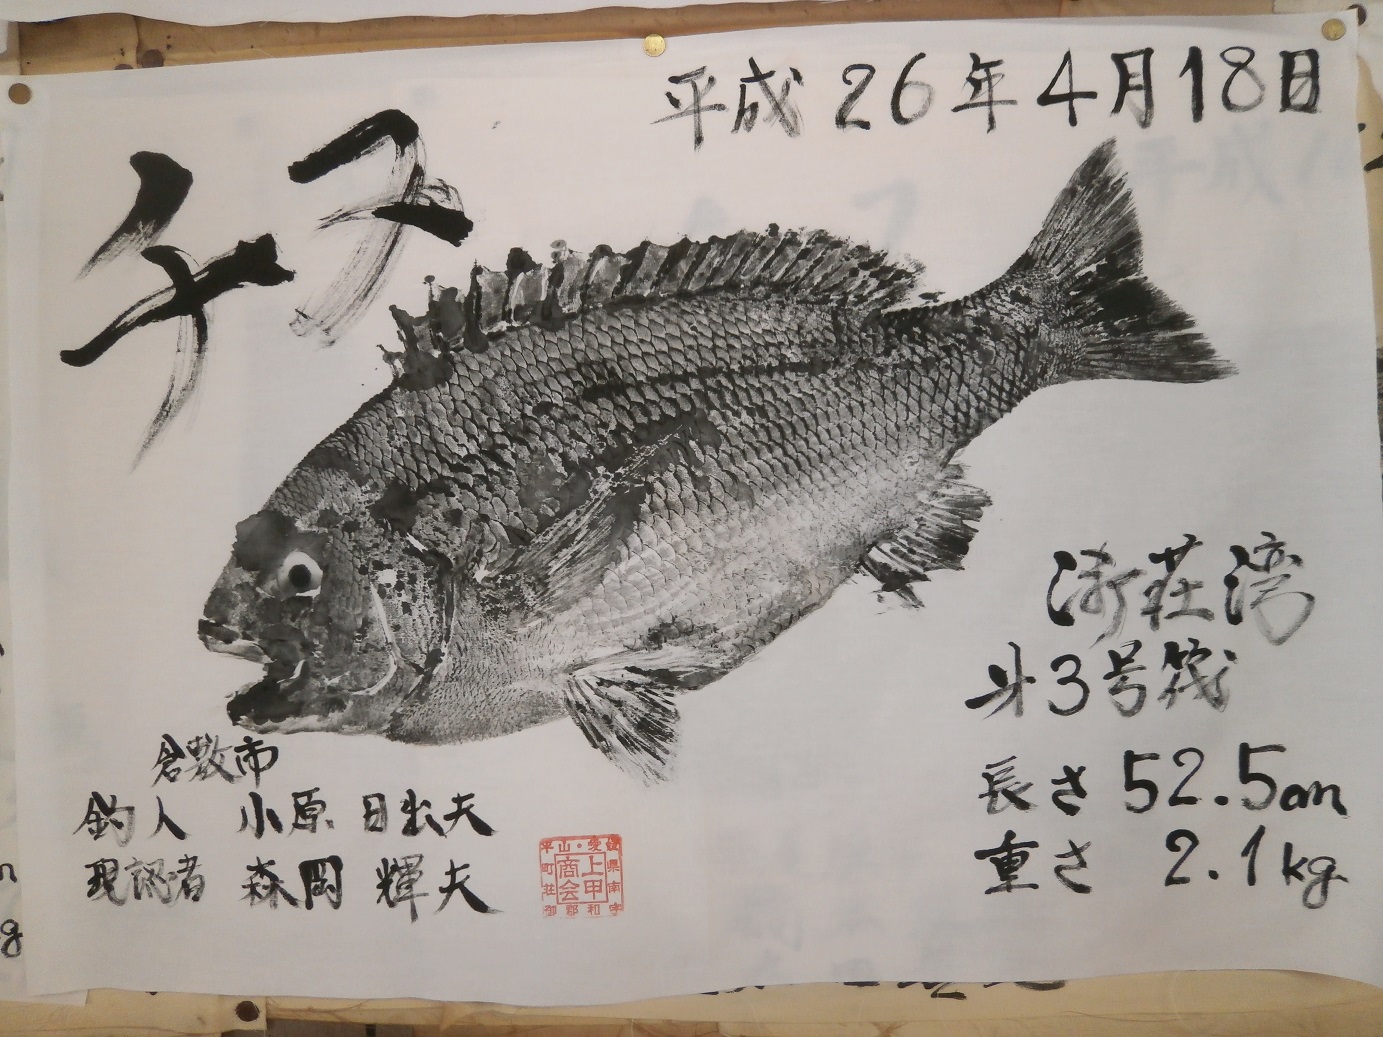 平成26年4月18日
チヌ
御荘湾
才3号筏
長さ 52.5cm
重さ 2.1kg
倉敷市
釣人 小原 日出夫
現認者 森岡 輝夫
愛媛県南宇和郡御荘町平山
上甲商会